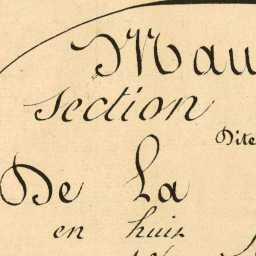 Mau
Section
Dite
De La
en huit